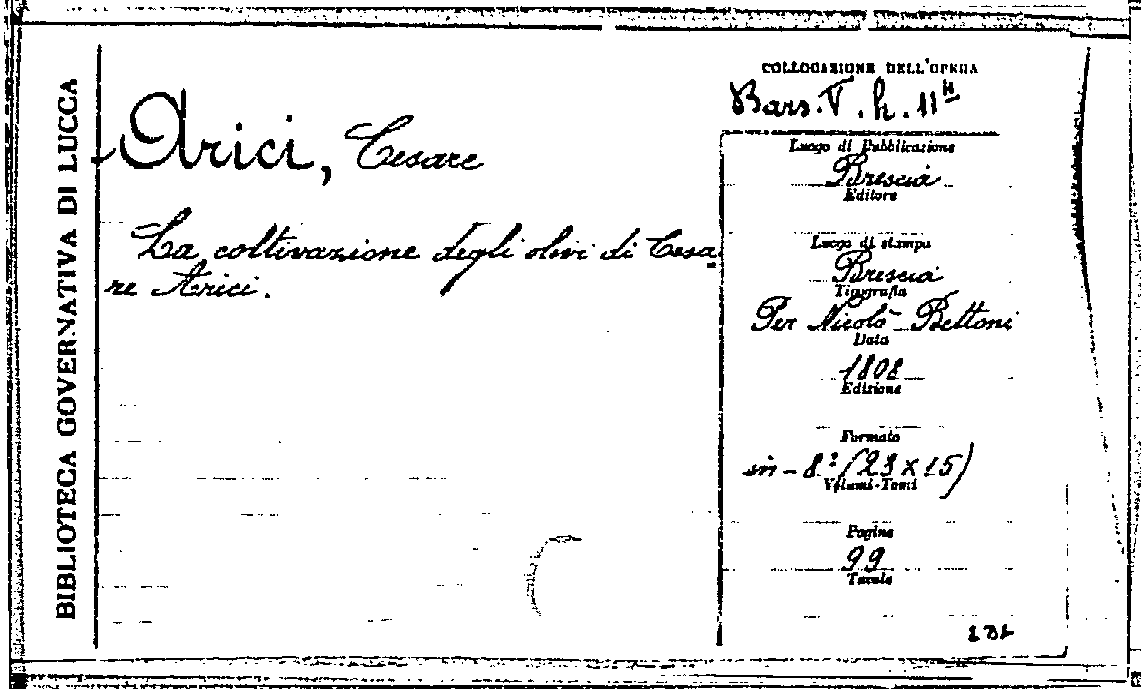 BIBLIOTECA GOVERNATIVA DI LUCCA
Arici, Cesare
La coltivazione degli olivi di Cesa=
re Arici.
COLLOCAZIONE DELL'OPERA
Bars. V. h. 11
Luogo di Pubblicazione
Brescia
Editore
Luogo di stampa
Brescia
Tipografia
Per Nicolò Bettoni
Data
1808
Edizione
Formato
in-8° (23 x 15)
Volumi-Tomi
Pagine
99
Tavole